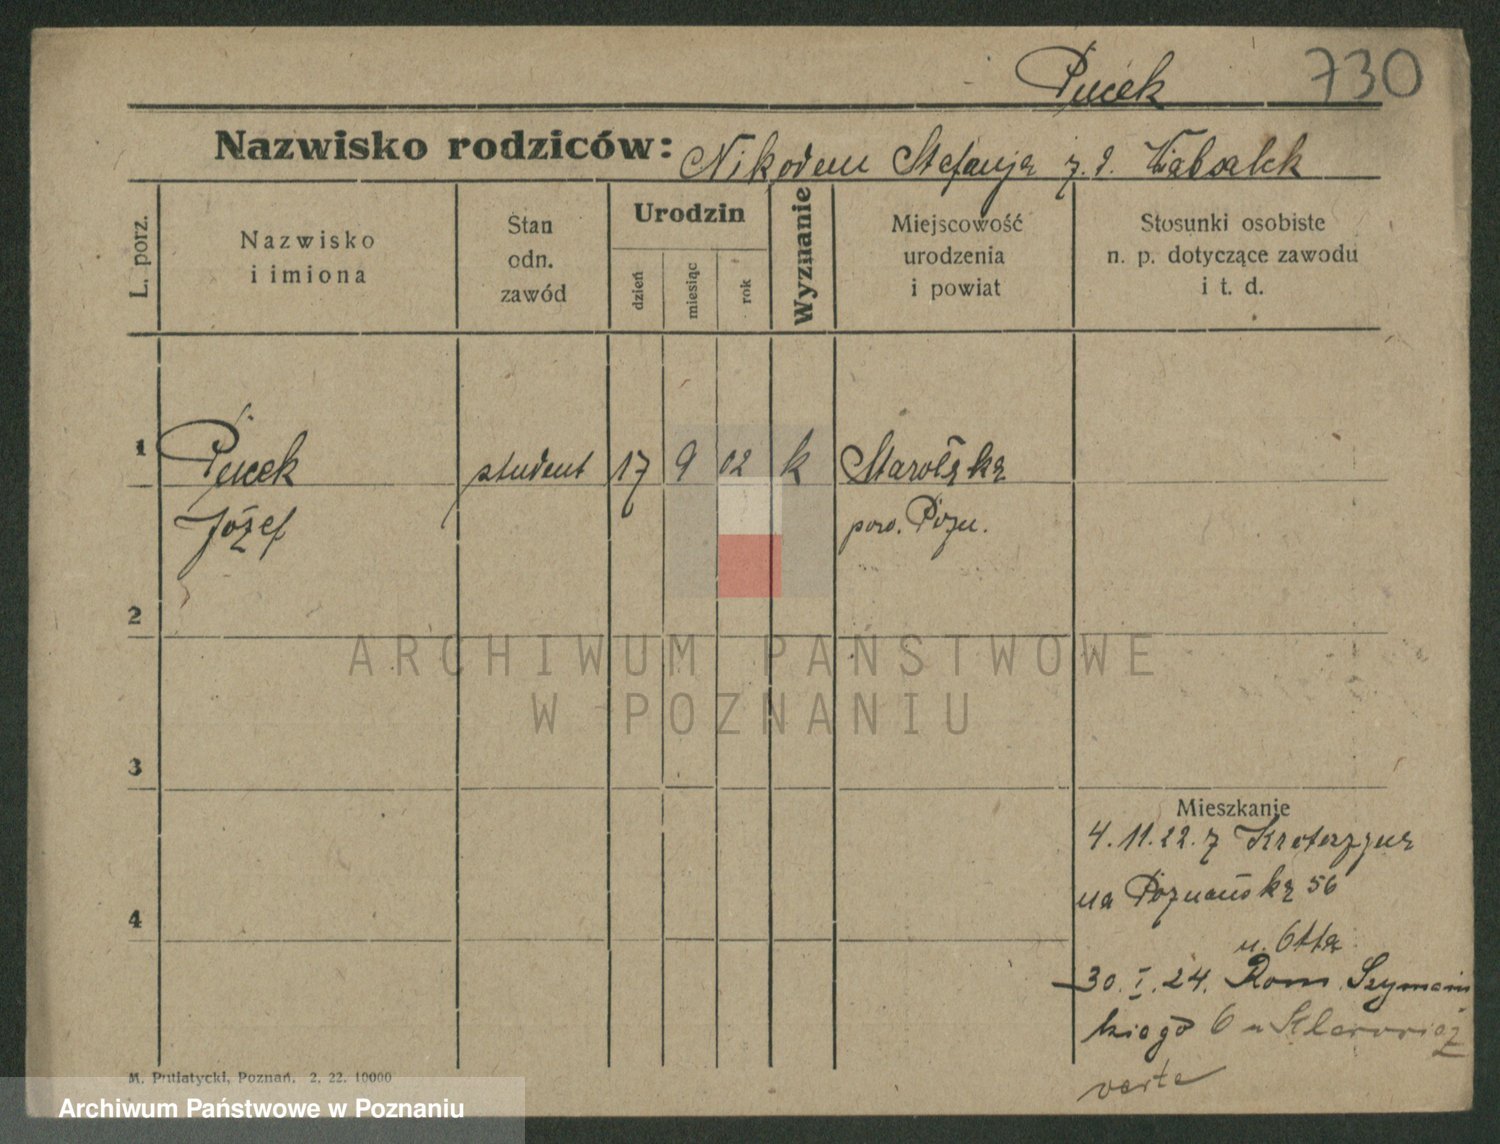 Pucek 730
Nazwisko rodziców: Nikodem Stefanja z. d.
L. porz.
Nazwisko
i imiona
Stan
odn.
zawód
Urodzin
dzień
miesiąc
rok
Wyznanie
Miejscowość
urodzenia
i powiat
Stosunki osobiste
n. p. dotyczące zawodu
i t. d.
1 Pucek student 17 9 02 k Starołęka
Józef pow. Pozn.
2
3
4
Mieszkanie
4. 11. 22. z
na Poznańską 56
u. Otta
30. I. 24. Rom. Szymań
kiego 6 u
verte
M. Putiatycki, Poznań. 2. 22. 10000
ARCHIWUM PAŃSTWOWE
W POZNANIU
Archiwum Państwowe w Poznaniu